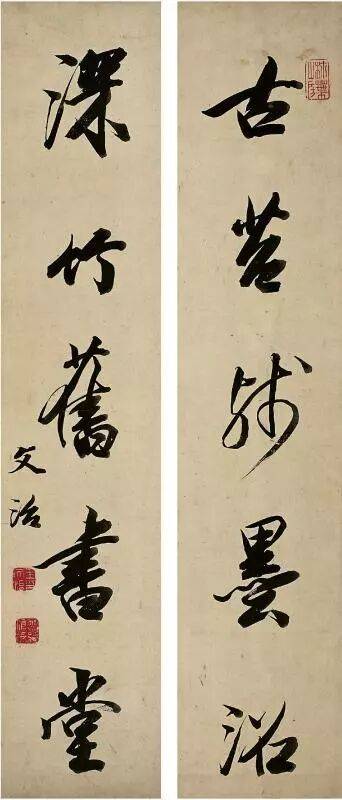 古苔殘墨沼
深竹舊書堂
文治